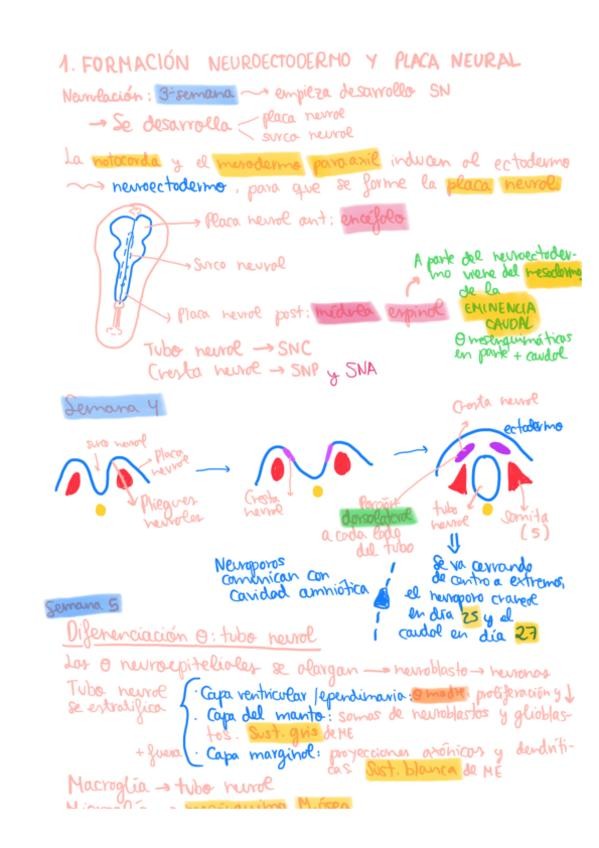 1. FORMACIÓN NEUROECTODERMO Y PLACA NEURAL
Neurulación: 3ª semana → empieza desarrollo SN
→ Se desarrolla < placa neural
surco neural
La notocorda y el mesodermo paraaxil inducen al ectodermo
→ neuroectodermo, para que se forme la placa neural
Placa neural ant: encéfalo
Surco neural
Placa neural post: médula espinal
A parte del neuroectoder-
mo viene del mesodermo
de la
EMINENCIA
CAUDAL
Θ mesenquimáticas
en parte + caudal
Tubo neural → SNC
Cresta neural → SNP y SNA
Semana 4
surco neural
Placa
neural
Pliegues
neurales
Cresta
neural
Cresta neural
ectodermo
Porción
dorsolateral
a cada lado
del tubo
tubo
neural
Somita
(5)
Neuroporos
comunican con
cavidad amniótica
Se va cerrando
de centro a extremos,
el neuroporo craneal
en día 25 y el
caudal en día 27
Semana 5
Diferenciación Θ: tubo neural
Las Θ neuroepiteliales se alargan → neuroblasto → neuronas
Tubo neural
se estratifica
· Capa ventricular/ependimaria: Θ madre, proliferación y ↓
· Capa del manto: somas de neuroblastos y glioblas-
tos. Sust. gris de ME
+ fuera
· Capa marginal: proyecciones axónicas y dendríti-
cas Sust. blanca de ME
Macroglía → tubo neural